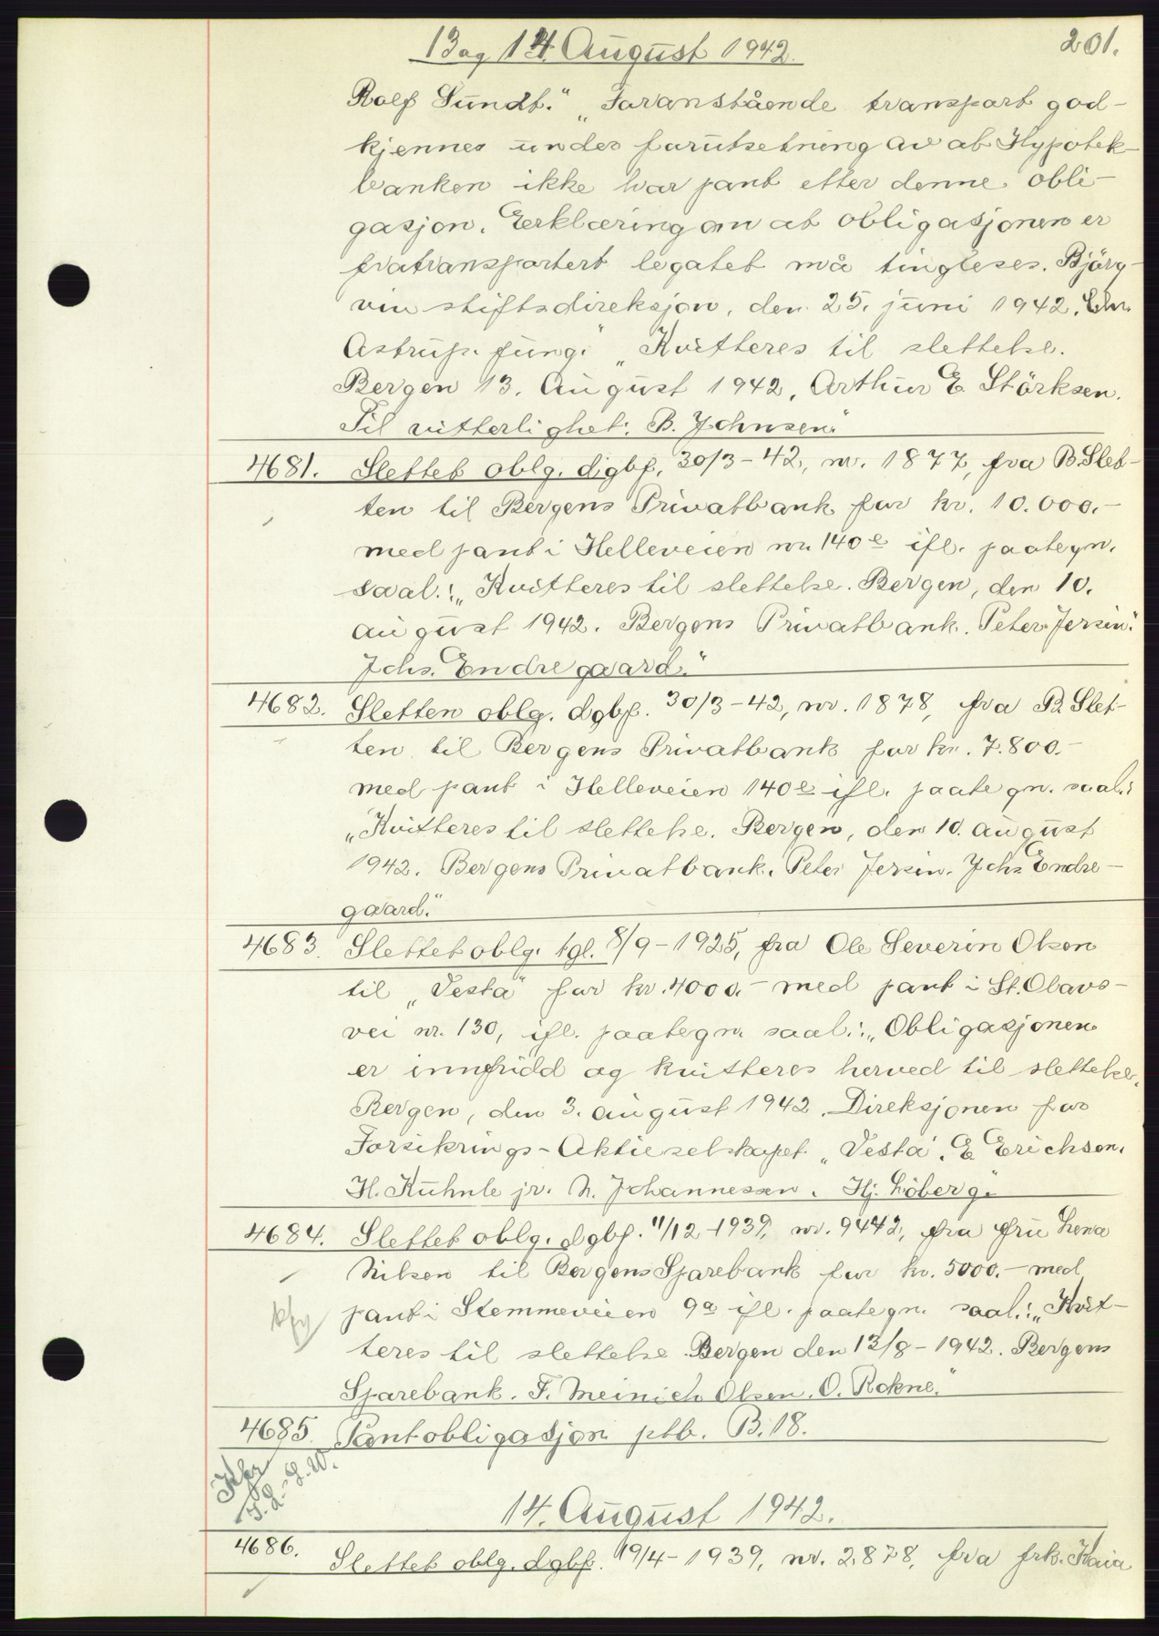 13 og 14. August 1942.
201.
Rolf Sundt." „Foranstående transport god-
kjennes under forutsetning av at Hypotek-
banken ikke har pant etter denne obli-
gasjon. Erklæring om at obligasjonen er
fratransportert legatet må tingleses. Björg-
vin stiftsdireksjon, den 25. juni 1942. Chr.
Astrup. fung." „Kvitteres til slettelse.
Bergen 13. August 1942. Arthur E. Störksen.
Til vitterlighet: B. Johnsen."
4681. Slettet oblg. dgbf. 30/3-42, nr. 1877, fra B. Slet-
ten til Bergens Privatbank for kr. 10.000.-
med pant i Helleveien nr. 140e ifl. paategn.
saal.: „Kvitteres til slettelse. Bergen, den 10.
august 1942. Bergens Privatbank. Peter Jersin.
Johs. Endregaard."
4682. Sletten oblg. dgbf. 30/3-42, nr. 1878, fra B. Slet-
ten til Bergens Privatbank for kr. 7.800.-
med pant i Helleveien 140e ifl. paategn. saal.:
„Kvitteres til slettelse. Bergen, den 10. august
1942. Bergens Privatbank. Peter Jersin. Johs. Endre-
gaard."
4683. Slettet oblg. tgl. 8/9-1925, fra Ole Severin Olsen
til „Vesta" for kr. 4000.- med pant i St. Olavs-
vei nr. 130, ifl. paategn. saal.: „Obligasjonen
er innfridd og kvitteres herved til slettelse.
Bergen, den 3. august 1942. Direksjonen for
Forsikrings-Aktieselskapet „Vesta". E. Erichsen.
H. Kuhnle jr. N. Johannessen. Hj. Löberg."
4684. Slettet oblg. dgbf. 11/12-1939, nr. 9442, fra fru Lena
Nilsen til Bergens Sparebank for kr. 5000.- med
pant i Stemmeveien 9a ifl. paategn. saal.: „Kvit-
teres til slettelse. Bergen den 13/8-1942. Bergens
Sparebank. F. Meinich Olsen. O. Rokne."
4685. Pantobligasjon ptb. B. 18.
14. August 1942.
4686. Slettet oblg. dgbf. 19/4-1939, nr. 2878, fra frk. Kaia